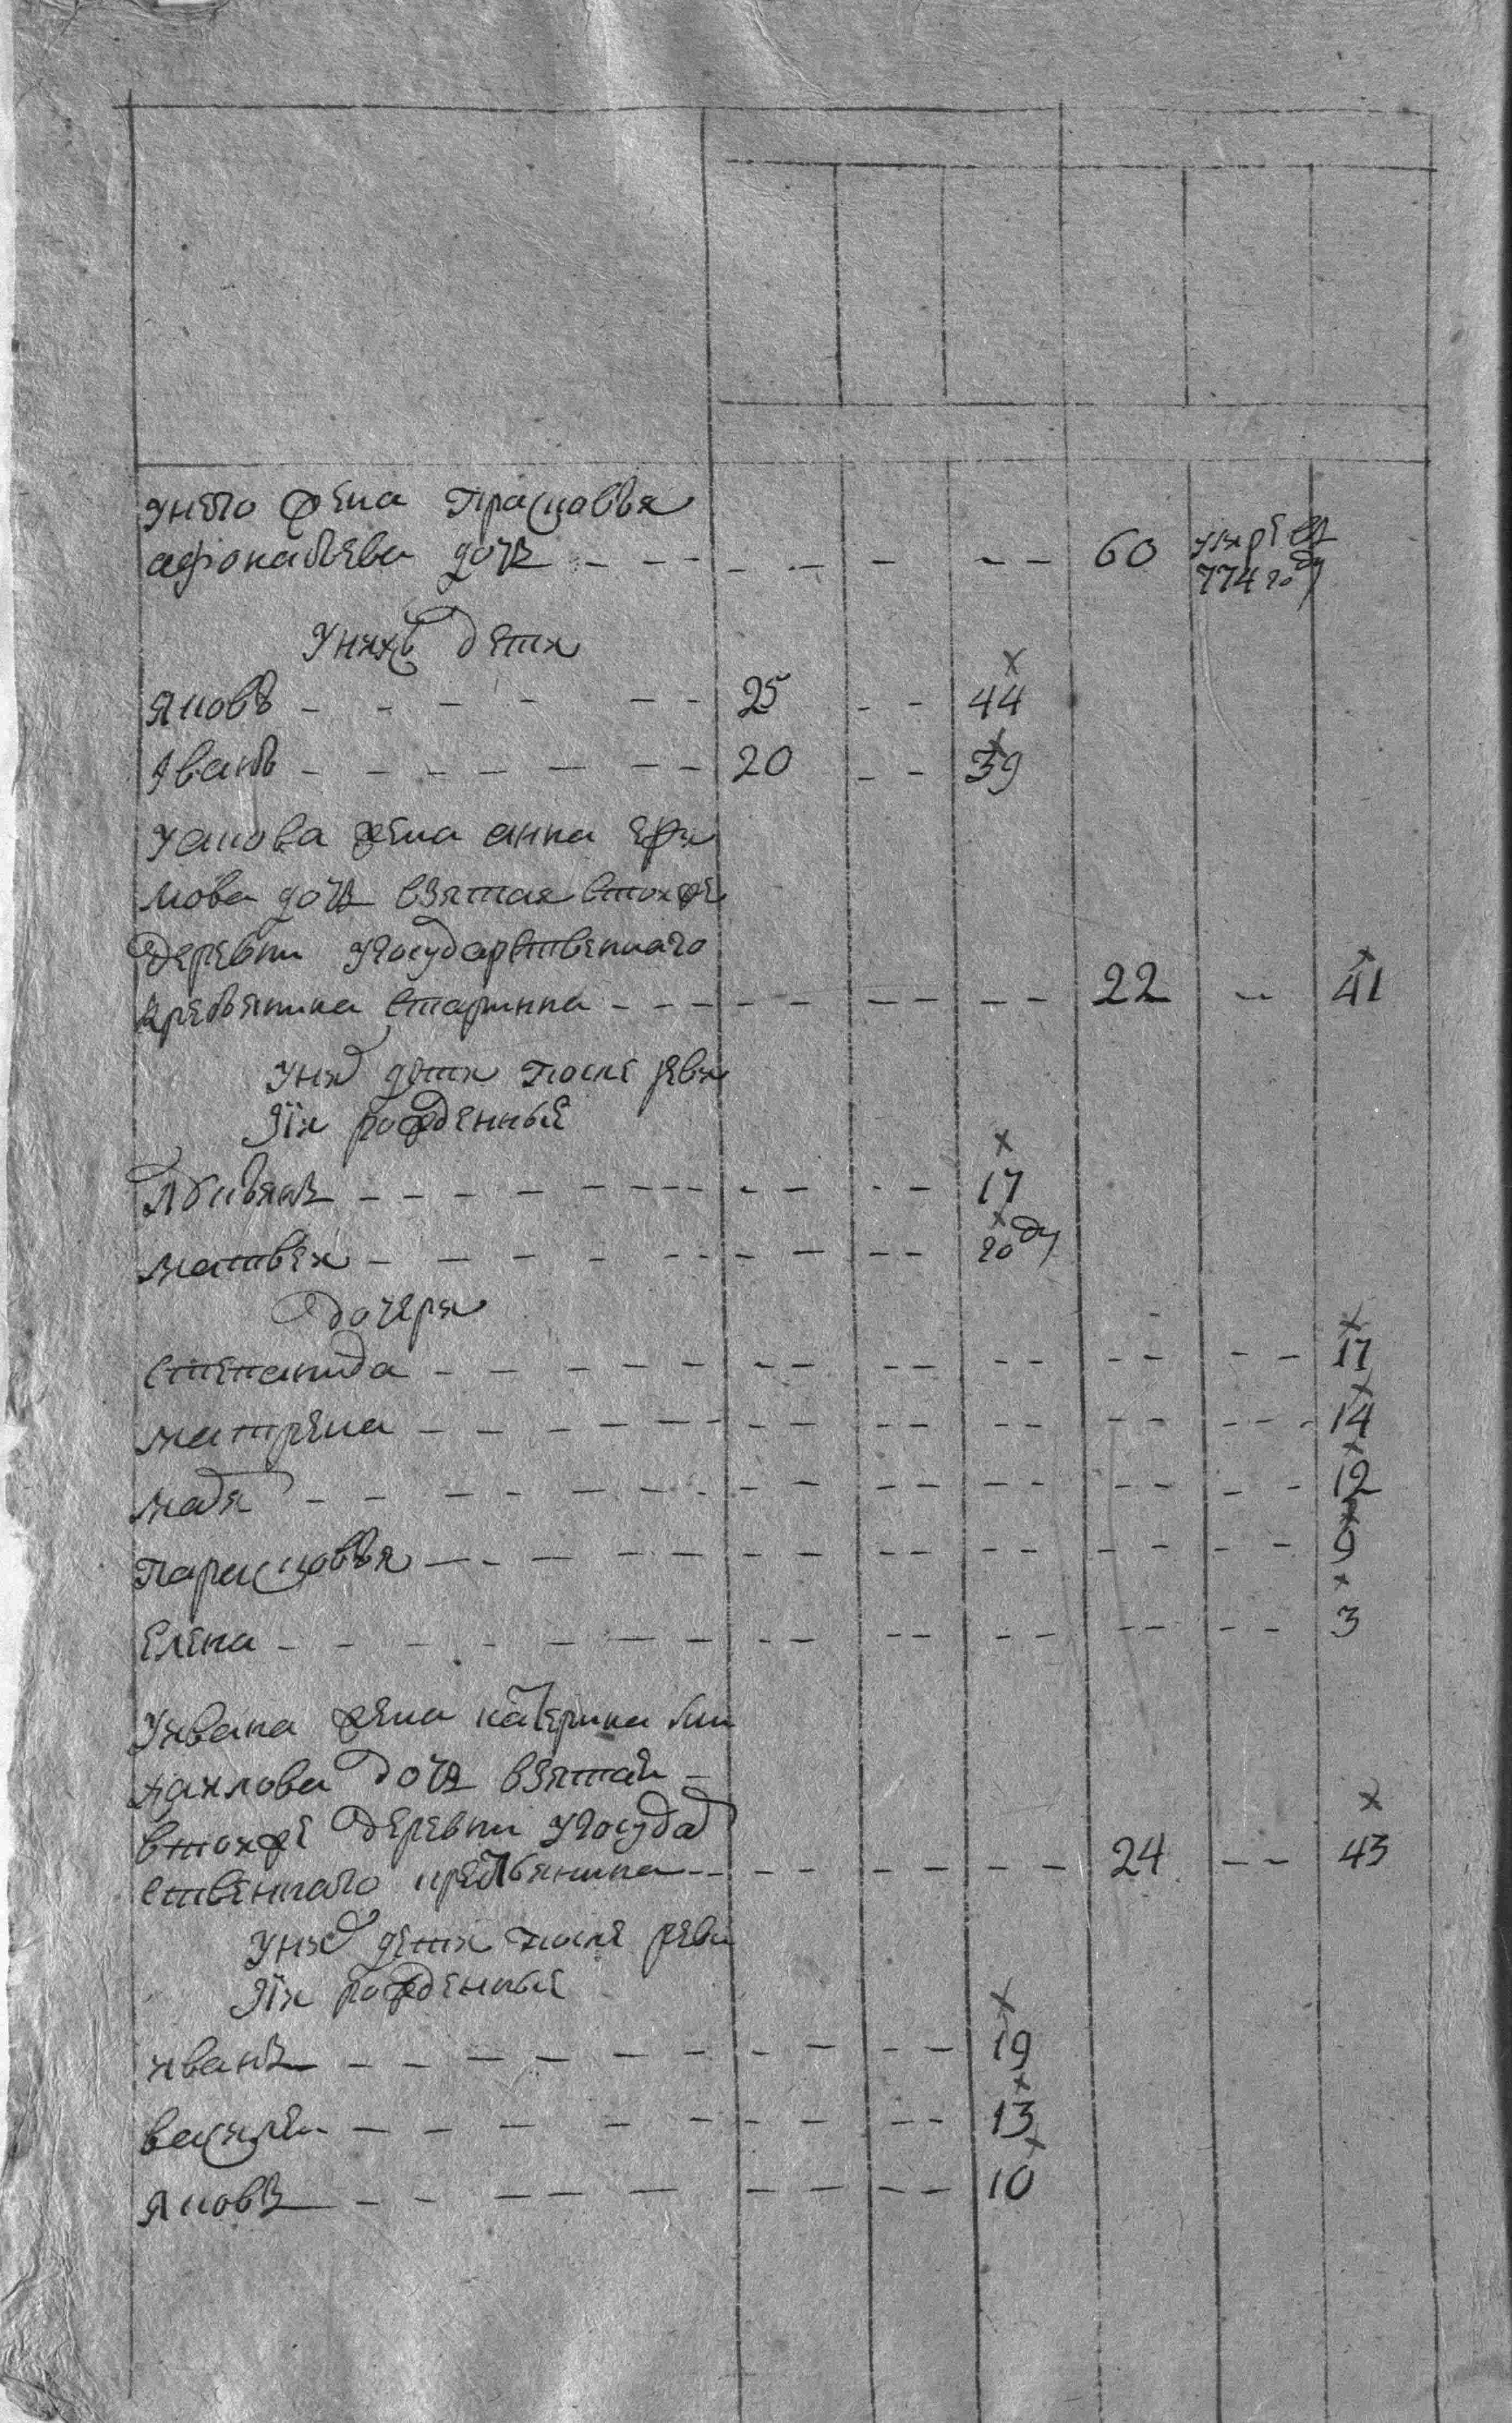 унего жена прасковья
афонасьева дочь 60 умре въ
774 году
Унихъ дети
яковъ 25 44
Иванъ 20 39
Уякова жена анна ефи
мова дочь взятая втой же
деревни угосударственнаго
крестьянина старинна 22 41
Унихъ дети после реви
зiи рожденные
17
матвей году
дочери
степанида 17
матрена 14
12
парасковья 9
елена 3
Уивана жена катерина ми
хаилова дочь взятая
втой же деревни угосудар
ственнаго крестьянина 24 43
Унихъ дети после реви
зiи рожденные
иванъ 19
василеи 13
яковъ 10